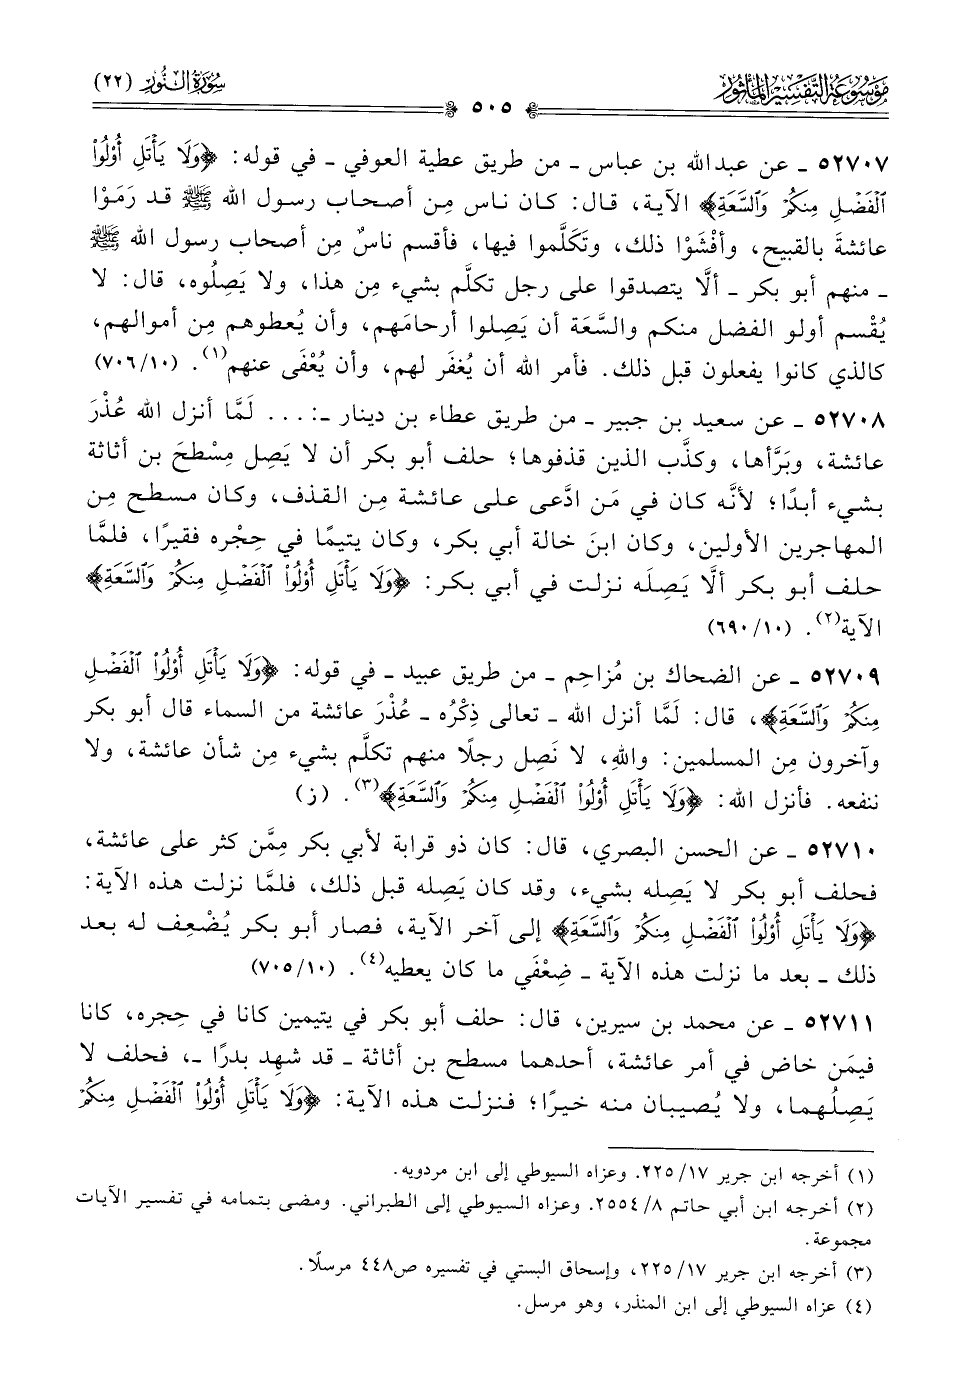 موسوعة التفسير المأثور
سورة النور (٢٢)
٥٠٥
٥٢٧٠٧ ـ عن عبدالله بن عباس ـ من طريق عطية العوفي ـ في قوله: ﴿وَلَا يَأْتَلِ أُوْلُواْ
ٱلْفَضْلِ مِنكُمْ وَٱلسَّعَةِ﴾ الآية، قال: كان ناس مِن أصحاب رسول الله ﷺ قد رَمَوْا
عائشةَ بالقبيح، وأفْشَوْا ذلك، وتَكَلَّموا فيها، فأقسم ناسٌ مِن أصحاب رسول الله ﷺ
ـ منهم أبو بكر ـ ألَّا يتصدقوا على رجل تكلَّم بشيء مِن هذا، ولا يَصِلُوه، قال: لا
يُقْسِم أولو الفضل منكم والسَّعَة أن يَصِلوا أرحامَهم، وأن يُعطوهم مِن أموالهم،
كالذي كانوا يفعلون قبل ذلك. فأمر الله أن يُغفَر لهم، وأن يُعْفَى عنهم(١). (١٠/٧٠٦)
٥٢٧٠٨ ـ عن سعيد بن جبير ـ من طريق عطاء بن دينار ـ: ... لَمَّا أنزل الله عُذْرَ
عائشة، وبَرَّأها، وكذَّب الذين قذفوها؛ حلف أبو بكر أن لا يَصِل مِسْطَح بن أثاثة
بشيء أبدًا؛ لأنَّه كان في مَن ادَّعى على عائشة مِن القذف، وكان مسطح مِن
المهاجرين الأولين، وكان ابنَ خالة أبي بكر، وكان يتيمًا في حِجْره فقيرًا، فلمَّا
حلف أبو بكر ألَّا يَصِلَه نزلت في أبي بكر: ﴿وَلَا يَأْتَلِ أُوْلُواْ ٱلْفَضْلِ مِنكُمْ وَٱلسَّعَةِ﴾
الآية(٢). (١٠/٦٩٠)
٥٢٧٠٩ ـ عن الضحاك بن مُزاحِم ـ من طريق عبيد ـ في قوله: ﴿وَلَا يَأْتَلِ أُوْلُواْ ٱلْفَضْلِ
مِنكُمْ وَٱلسَّعَةِ﴾، قال: لَمَّا أنزل الله ـ تعالى ذِكْرُه ـ عُذْرَ عائشة من السماء قال أبو بكر
وآخرون مِن المسلمين: واللهِ، لا نَصِل رجلًا منهم تكلَّم بشيء مِن شأن عائشة، ولا
ننفعه. فأنزل الله: ﴿وَلَا يَأْتَلِ أُوْلُواْ ٱلْفَضْلِ مِنكُمْ وَٱلسَّعَةِ﴾(٣). (ز)
٥٢٧١٠ ـ عن الحسن البصري، قال: كان ذو قرابة لأبي بكر مِمَّن كثر على عائشة،
فحلف أبو بكر لا يَصِله بشيء، وقد كان يَصِله قبل ذلك، فلمَّا نزلت هذه الآية:
﴿وَلَا يَأْتَلِ أُوْلُواْ ٱلْفَضْلِ مِنكُمْ وَٱلسَّعَةِ﴾ إلى آخر الآية، فصار أبو بكر يُضْعِف له بعد
ذلك ـ بعد ما نزلت هذه الآية ـ ضِعْفَي ما كان يعطيه(٤). (١٠/٧٠٥)
٥٢٧١١ ـ عن محمد بن سيرين، قال: حلف أبو بكر في يتيمين كانا في حِجره، كانا
فيمَن خاض في أمر عائشة، أحدهما مسطح بن أثاثة ـ قد شهِد بدرًا ـ، فحلف لا
يَصِلُهما، ولا يُصيبان منه خيرًا؛ فنزلت هذه الآية: ﴿وَلَا يَأْتَلِ أُوْلُواْ ٱلْفَضْلِ مِنكُمْ
(١) أخرجه ابن جرير ١٧/ ٢٢٥. وعزاه السيوطي إلى ابن مردويه.
(٢) أخرجه ابن أبي حاتم ٨/ ٢٥٥٤. وعزاه السيوطي إلى الطبراني. ومضى بتمامه في تفسير الآيات
مجموعة.
(٣) أخرجه ابن جرير ١٧/ ٢٢٥، وإسحاق البستي في تفسيره ص٤٤٨ مرسلًا.
(٤) عزاه السيوطي إلى ابن المنذر، وهو مرسل.